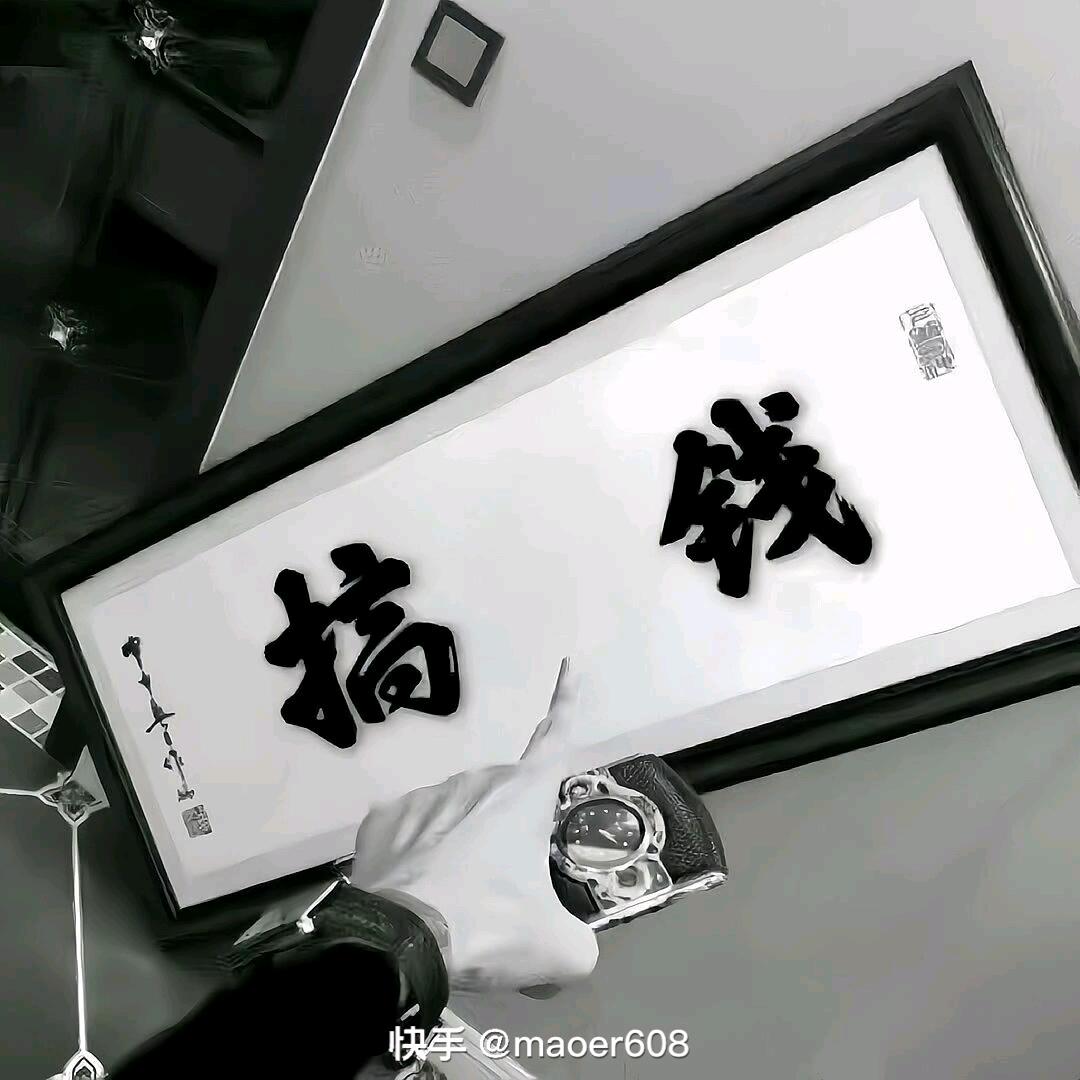 搞钱
快手 @maoer608